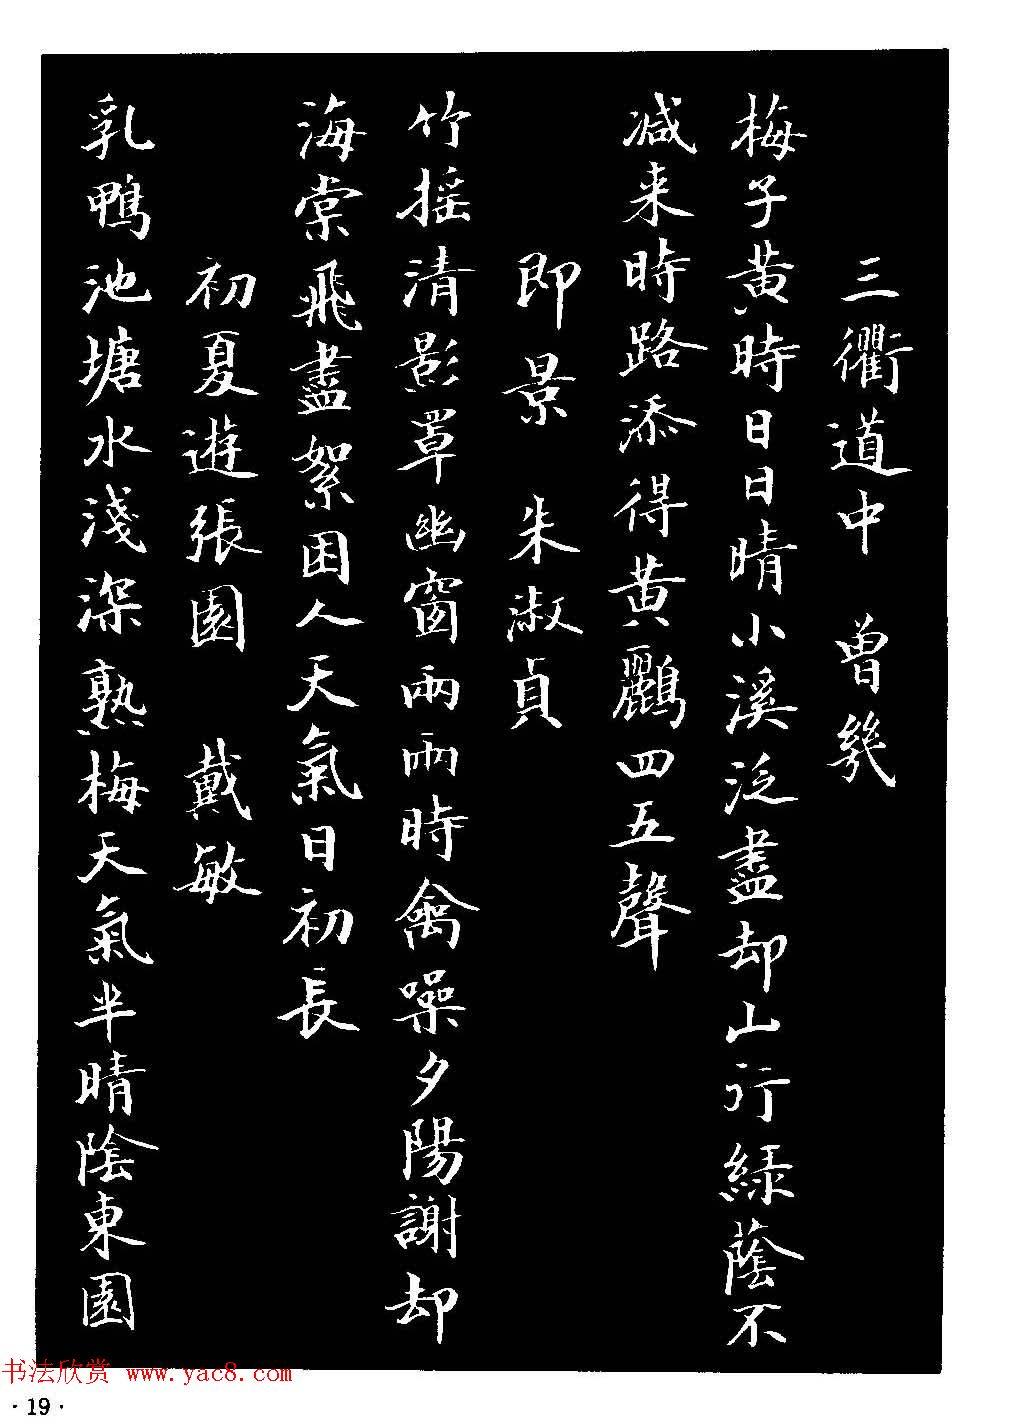 三衢道中 曾幾
梅子黃時日日晴小溪泛盡却山行綠蔭不
減来時路添得黃鸝四五聲
即景 朱淑貞
竹摇清影罩幽窗兩兩時禽噪夕陽謝却
海棠飛盡絮困人天氣日初長
初夏遊張園 戴敏
乳鴨池塘水淺深熟梅天氣半晴陰東園
书法欣赏 www.yac8.com
·19·